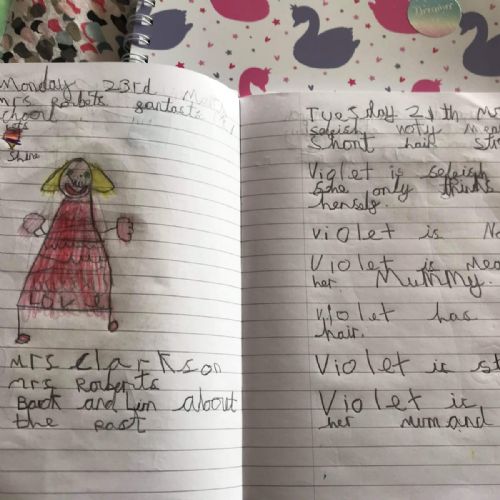 Monday 23rd
Mrs Roberts
school
Shine
LOVE
Mrs Clarkson
Mrs Roberts
Back and Lim about
the past
Tuesday 24th M
selfish noty Mea
Short hair St
Violet is selfish
She only thinks
herself.
Violet is No
Violet is Mea
her Mummy.
Violet has
hair.
Violet is St
Violet is
her mum and